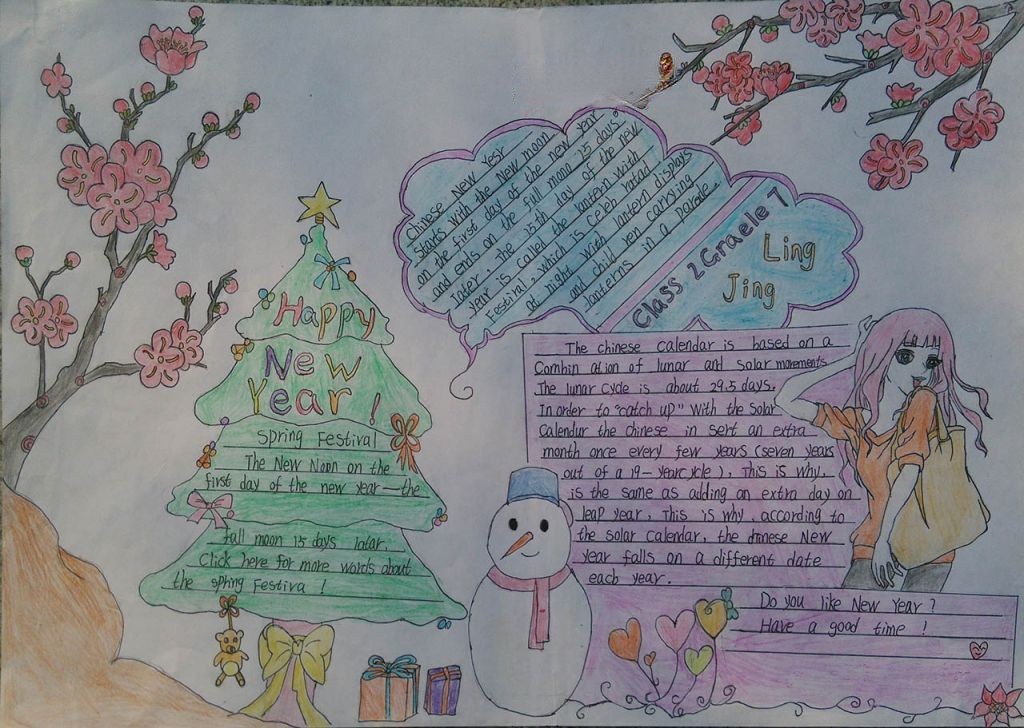 Happy
New
Year!
Spring Festival
The New Noon on the
first day of the new year—the
full moon 15 days latar.
Click here for more words about
the spring Festiva!
Chinese New Year
Starts with the New moon
on the first day of the new year
and ends on the full mona 15 days
later. The 15th day of the new
year is called the lantern with
Festival, which is celeb ratad
at night with lantern displays
and child ren carrying
lanterns in a parade.
Class 2 Graele 7
Ling
Jing
The chinese calendar is based on a
Combin ation of lunar and solar movements
The lunar cycle is about 29.5 days.
In order to "catch up" with the solar
Calendur the chinese in sert an extra
month once every few years (seven years
out of a 19-yearcycle). This is why.
is the same as adding an extra day on
leap year. This is why. according to
the solar calendar, the chinese New
year falls on a different date
each year.
Do you like New Year?
Have a good time!